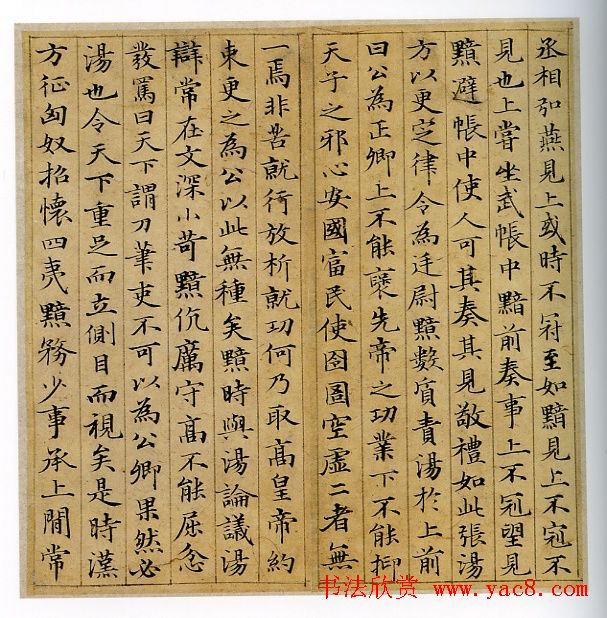 丞相弘燕見上或時不冠至如黯見上不冠不
見也上嘗坐武帳中黯前奏事上不冠望見
黯避帳中使人可其奏其見敬禮如此張湯
方以更定律令為廷尉黯數質責湯於上前
曰公為正卿上不能褒先帝之功業下不能抑
天子之邪心安國富民使囹圄空虛二者無
一焉非苦就行放析就功何乃取高皇帝約
束更之為公以此無種矣黯時與湯論議湯
辯常在文深小苛黯伉厲守高不能屈忿
發罵曰天下謂刀筆吏不可以為公卿果然必
湯也令天下重足而立側目而視矣是時漢
方征匈奴招懷四夷黯務少事承上閒常
书法欣赏 www.yac8.com